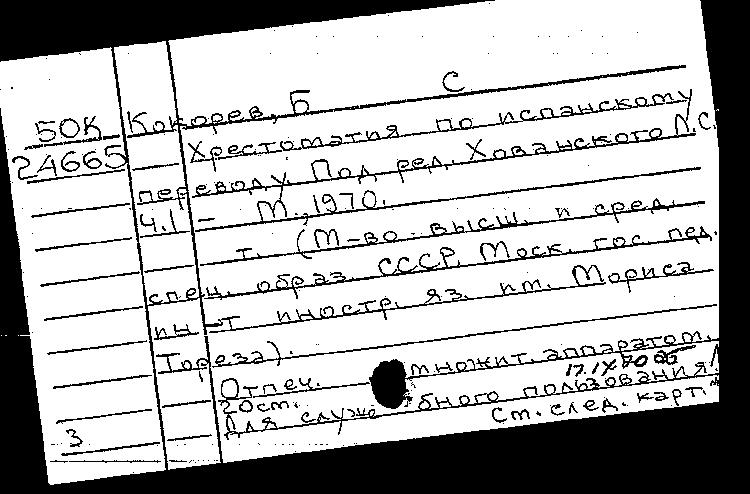 С
50К Кокорев, Б
24665 Хрестоматия по испанскому
переводу Под ред. Хованского Л.С.
Ч.1 - М., 1970.
т. (М-во высш. и сред.
спец. образ. СССР. Моск. гос. пед.
ин-т иностр. яз. им. Мориса
Тореза).
Отпеч. множит. аппаратом.
20см. 17.IX
Для служебного пользования
3 См. след. карт.